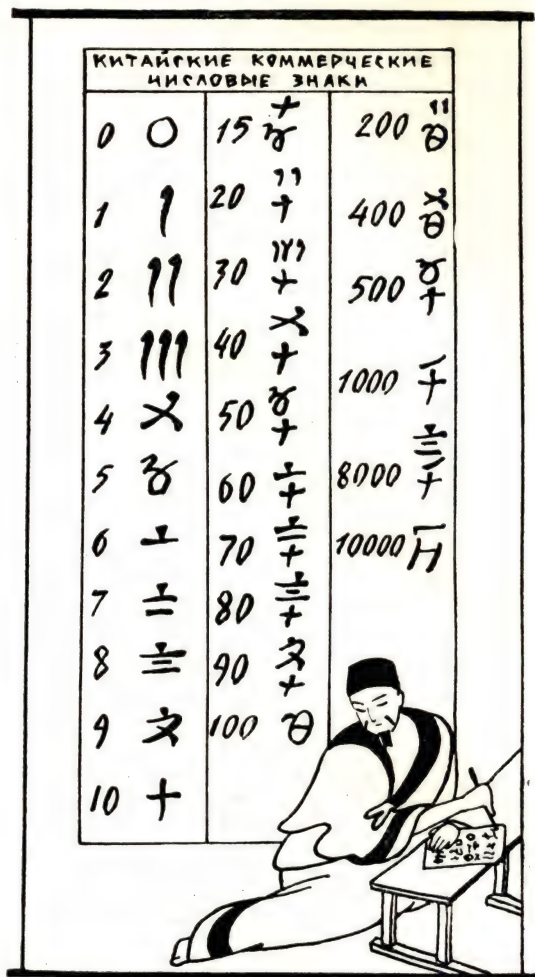 КИТАЙСКИЕ КОММЕРЧЕСКИЕ
ЧИСЛОВЫЕ ЗНАКИ
0 〇
1 〡
2 〢
3 〣
4 〤
5 〥
6 〦
7 〧
8 〨
9 〩
10 十
15 十〥
20 〢十
30 〣十
40 〤十
50 〥十
60 〦十
70 〧十
80 〨十
90 〩十
100
200
400
500 〥十
1000 千
8000 〨千
10000